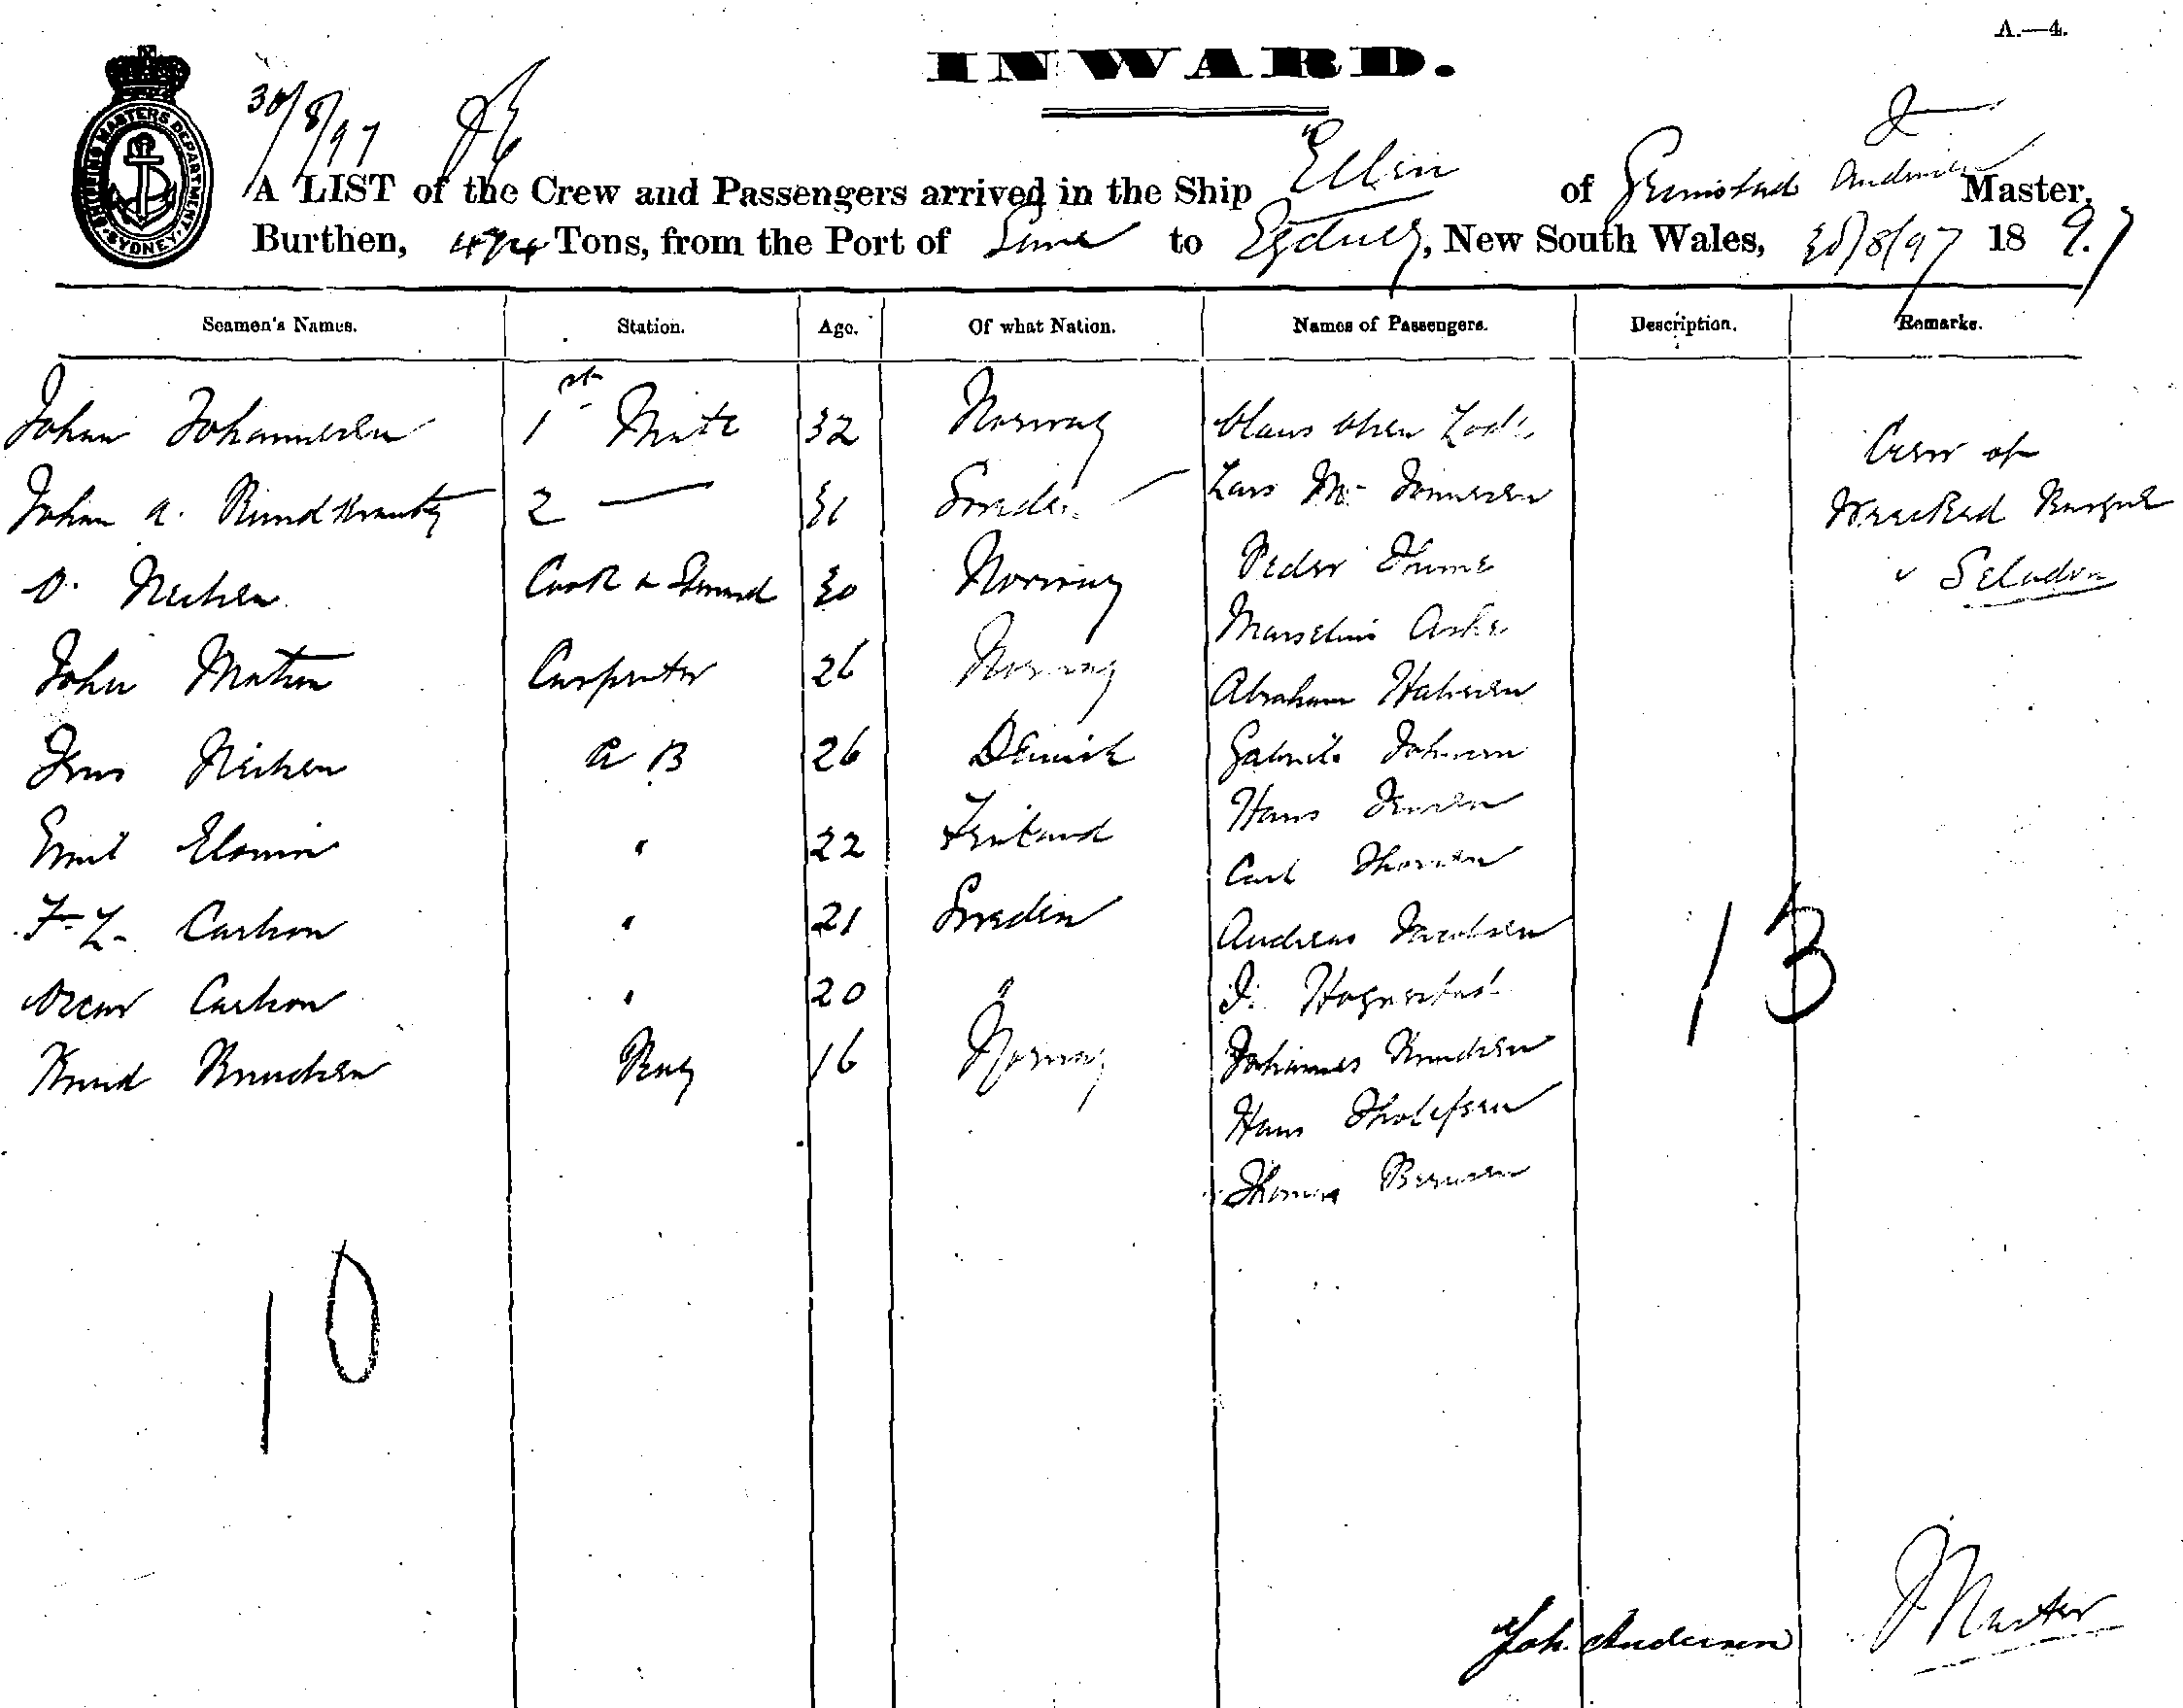 A.—4.
INWARD.
SHIPPING MASTERS DEPARTMENT SYDNEY
30/8/97
A LIST of the Crew and Passengers arrived in the Ship Ellin of Grimstad J Andersen Master,
Burthen, Tons, from the Port of to Sydney, New South Wales, 30/8/97 189.7
Seamen's Names. Station. Age. Of what Nation. Names of Passengers. Description. Remarks.
Johan Johannesen 1st Mate 32 Norway Olaus Olsen
Crew of
Johan A. 2 — 31 Sweden Lars M. Tönnesen
Wrecked Barque
O. Nielsen Cook & Steward 30 Norway Peder Thime
" Seladon
Marselius Aske
John Carpenter 26 Norway Abraham
Jens Nielsen A B 26 Danish Gabriel Johnsen
Hans Jensen
Emil " 22 Finland Carl
F. L. Carlson " 21 Sweden Andreas Jacobsen
13
Oscar Carlson " 20 "
Knud Knudsen Boy 16 Norway Johannes Knudsen
Hans Tholefsen
Thomas
10
Joh. Andersen Master